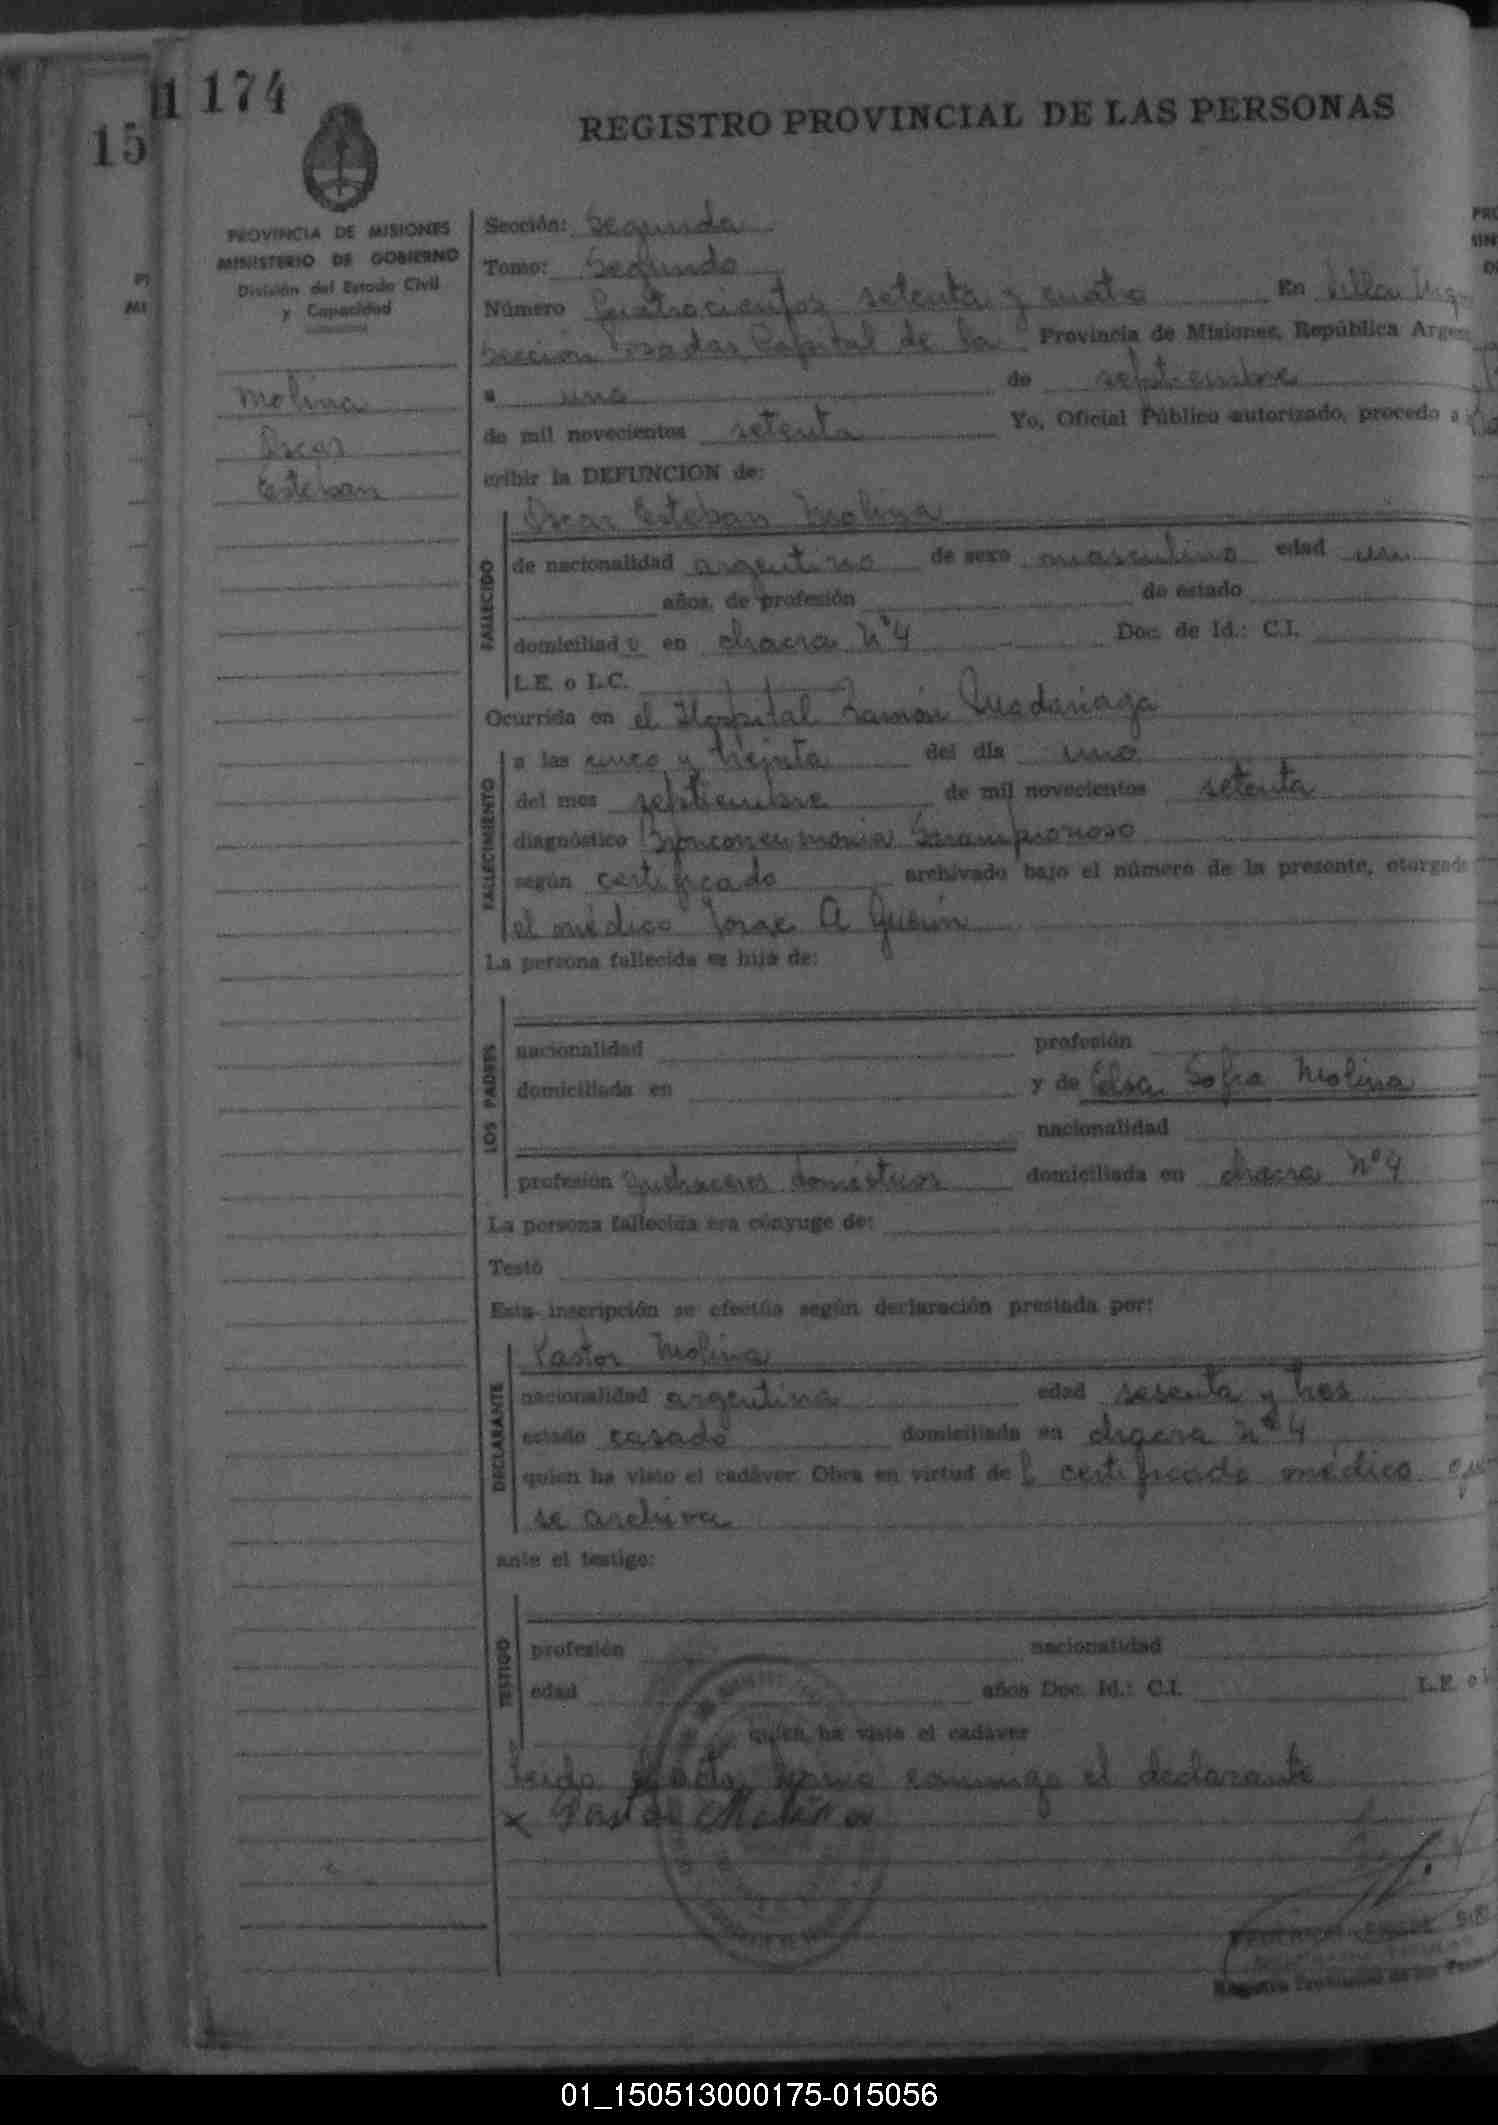 174
15
REGISTRO PROVINCIAL DE LAS PERSONAS
PROVINCIA DE MISIONES
MINISTERIO DE GOBIERNO
División del Estado Civil
y Capacidad
Molina
Oscar
Esteban
Sección: Segunda
Tomo: Segundo
Número Cuatrocientos setenta y cuatro En Villa
Sección Posadas Capital de la Provincia de Misiones, República
a uno de septiembre
de mil novecientos setenta Yo, Oficial Público autorizado, procedo a
cribir la DEFUNCION de:
Oscar Esteban Molina
FALLECIDO
de nacionalidad argentino de sexo masculino edad un
años, de profesión de estado
domiciliado en chacra Nº 4 Doc. de Id.: C.I.
L.E. o L.C.
Ocurrida en el Hospital Ramón Madariaga
FALLECIMIENTO
a las cinco y treinta del día uno
del mes septiembre de mil novecientos setenta
diagnóstico Bronconeumonia Sarampionoso
según certificado archivado bajo el número de la presente, otorgado
el médico Jorge A
La persona fallecida es hija de:
LOS PADRES
nacionalidad profesión
domiciliada en y de Elsa Sofia Molina
nacionalidad
profesión Quehaceres domésticos domiciliada en chacra Nº 4
La persona fallecida era cónyuge de:
Testó
Esta inscripción se efectúa según declaración prestada por:
Pastor Molina
DECLARANTE
nacionalidad argentina edad sesenta y tres
estado casado domiciliada en chacra Nº 4
quien ha visto el cadáver. Obra en virtud del certificado médico
se archiva
ante el testigo:
TESTIGO
profesión nacionalidad
edad años Doc. Id.: C.I. L.E. o
quien ha visto el cadáver
Leida el acta firma conmigo el declarante
x Pastor Molina
Registro Provincial de las
01_150513000175-015056